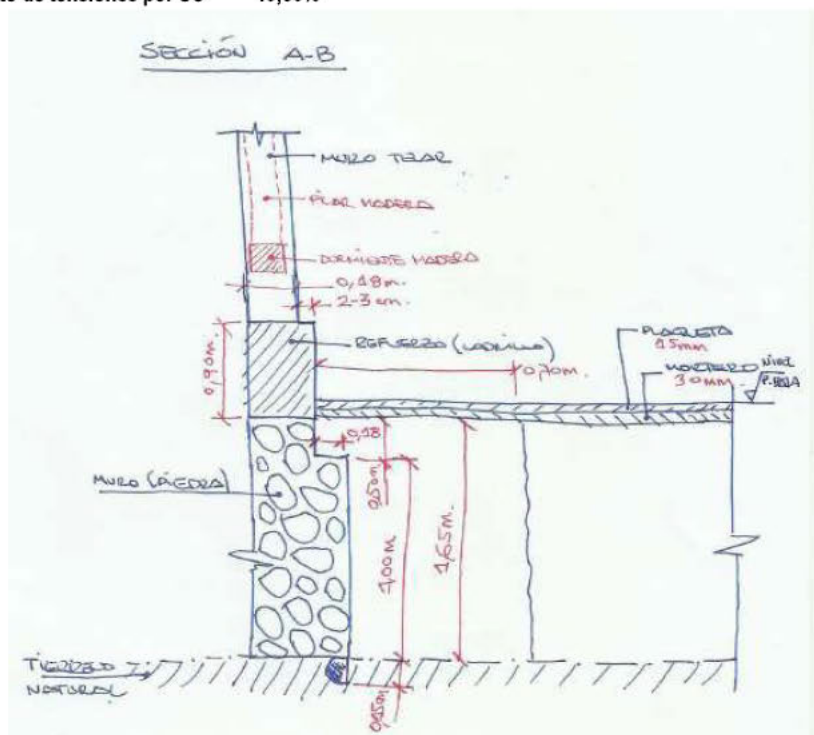 SECCIÓN A-B
MURO TELAR
PILAR MADERA
DURMIENTE MADERA
0,18m.
2-3 cm.
0,90m.
REFUERZO (LADRILLO)
0,70m.
PLAQUETA
15mm
MORTERO
30mm.
NIVEL
P. BAJA
0,18
MURO (PIEDRA)
1,00m
1,65m.
TERRENO
NATURAL
0,15m